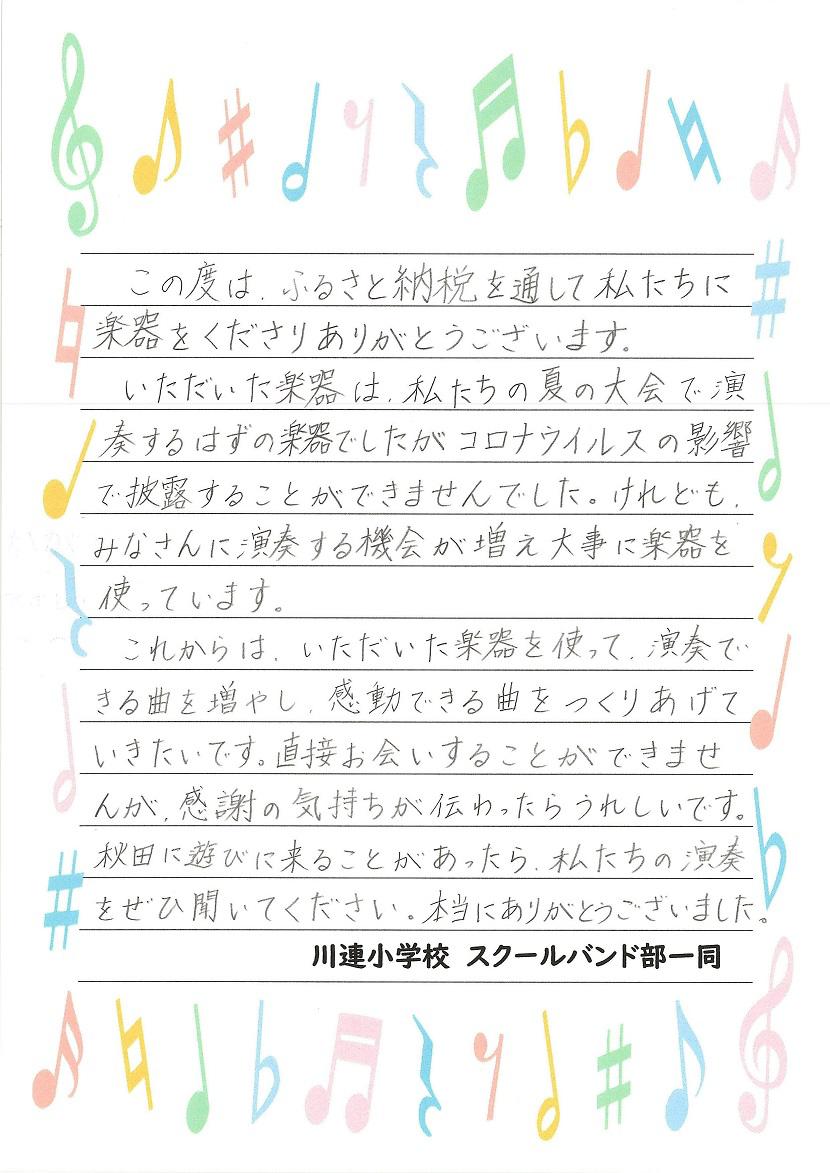 この度は、ふるさと納税を通して私たちに
楽器をくださりありがとうございます。
いただいた楽器は、私たちの夏の大会で演
奏するはずの楽器でしたがコロナウイルスの影響
で披露することができませんでした。けれども、
みなさんに演奏する機会が増え大事に楽器を
使っています。
これからは、いただいた楽器を使って、演奏で
きる曲を増やし、感動できる曲をつくりあげて
いきたいです。直接お会いすることができませ
んが、感謝の気持ちが伝わったらうれしいです。
秋田に遊びに来ることがあったら、私たちの演奏
をぜひ聞いてください。本当にありがとうございました。
川連小学校 スクールバンド部一同